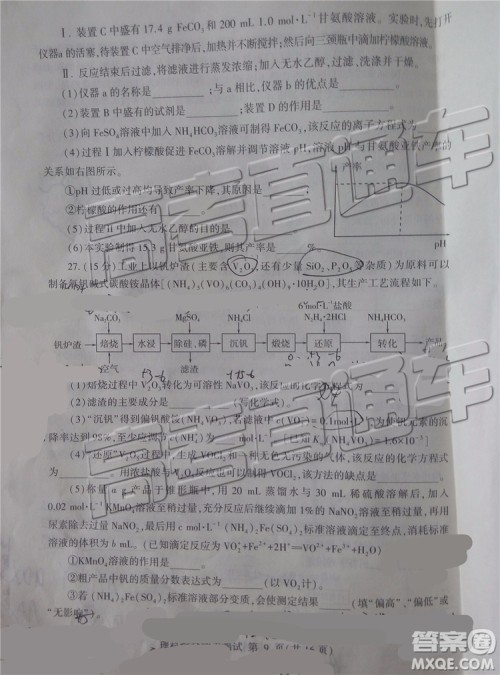 Ⅰ. 装置 C 中盛有 17.4 g FeCO₃ 和 200 mL 1.0 mol·L⁻¹ 甘氨酸溶液。实验时,先打开
仪器 a 的活塞,待装置 C 中空气排净后,加热并不断搅拌;然后向三颈瓶中滴加柠檬酸溶液。
Ⅱ. 反应结束后过滤,将滤液进行蒸发浓缩;加入无水乙醇,过滤、洗涤并干燥。
(1)仪器 a 的名称是 ;与 a 相比,仪器 b 的优点是 。
(2)装置 B 中盛有的试剂是 ;装置 D 的作用是 。
(3)向 FeSO₄ 溶液中加入 NH₄HCO₃ 溶液可制得 FeCO₃,该反应的离子方程式为 。
(4)过程Ⅰ加入柠檬酸促进 FeCO₃ 溶解并调节溶液 pH,溶液 pH 与甘氨酸亚铁产率的
关系如右图所示。
产率
①pH 过低或过高均导致产率下降,其原因是 ;
②柠檬酸的作用还有 。
(5)过程Ⅱ中加入无水乙醇的目的是 。
(6)本实验制得 15.3 g 甘氨酸亚铁,则其产率是 %。
pH
27.(15 分)工业上以钒炉渣(主要含 V₂O₃,还有少量 SiO₂、P₂O₅ 等杂质)为原料可以
制备氧钒碱式碳酸铵晶体[(NH₄)₅(VO)₆(CO₃)₄(OH)₉·10H₂O],其生产工艺流程如下。
Na₂CO₃ MgSO₄ NH₄Cl 6mol·L⁻¹盐酸 N₂H₄·2HCl NH₄HCO₃
钒炉渣 焙烧 水浸 除硅、磷 沉钒 煅烧 还原 转化 产品
空气 滤渣
(1)焙烧过程中 V₂O₃ 转化为可溶性 NaVO₃,该反应的化学方程式为 。
(2)滤渣的主要成分是 (写化学式)。
(3)“沉钒”得到偏钒酸铵(NH₄VO₃),若滤液中 c(VO₃⁻)=0.1mol·L⁻¹,为使钒元素的沉
降率达到 98%,至少应调节 c(NH₄⁺)为 mol·L⁻¹。[Ksp(NH₄VO₃)=1.6×10⁻³]
(4)“还原”V₂O₅ 过程中,生成 VOCl₂ 和一种无色无污染的气体,该反应的化学方程式
为 。用浓盐酸与 V₂O₅ 反应也可以制得 VOCl₂,该方法的缺点是 。
(5)称量 a g 产品于锥形瓶中,用 20 mL 蒸馏水与 30 mL 稀硫酸溶解后,加入
0.02 mol·L⁻¹ KMnO₄ 溶液至稍过量,充分反应后继续滴加 1% 的 NaNO₂ 溶液至稍过量,再用
尿素除去过量 NaNO₂,最后用 c mol·L⁻¹ (NH₄)₂Fe(SO₄)₂ 标准溶液滴定至终点,消耗标准
溶液的体积为 b mL。(已知滴定反应为 VO₂⁺+Fe²⁺+2H⁺=VO²⁺+Fe³⁺+H₂O)
①KMnO₄ 溶液的作用是 。
②粗产品中钒的质量分数表达式为 (以 VO₂ 计)。
③若 (NH₄)₂Fe(SO₄)₂ 标准溶液部分变质,会使测定结果 (填“偏高”、“偏低”或
“无影响”)。
高考直通车
答案圈
MXQE.COM